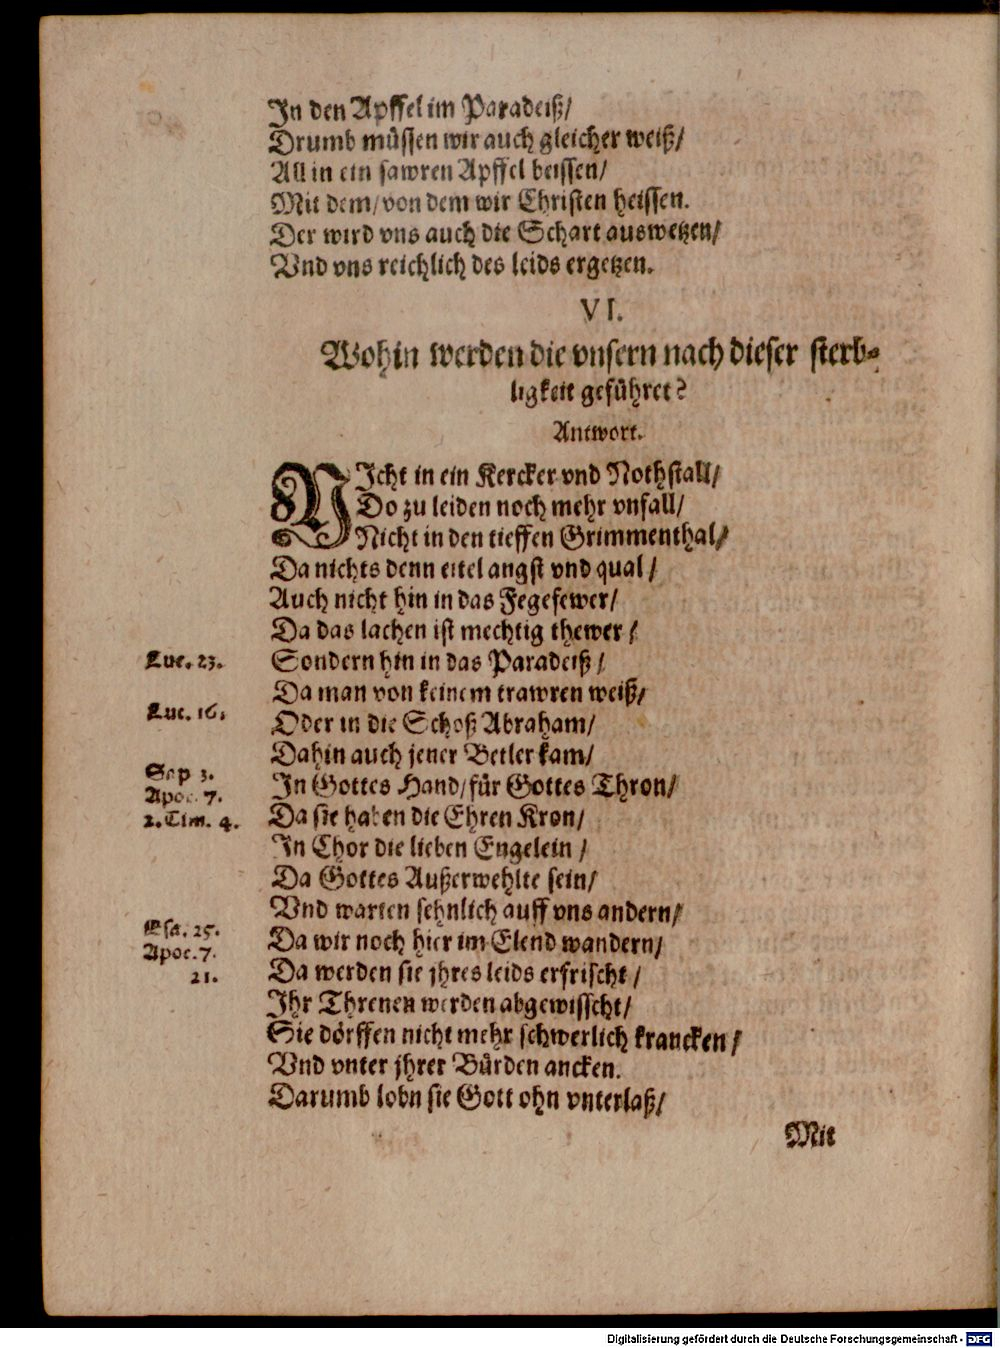 In den Apffel im Paradeiß/
Drumb müssen wir auch gleicher weiß/
All in ein sawren Apffel beissen/
Mit dem/ von dem wir Christen heissen.
Der wird vns auch die Schart auswetzen/
Vnd vns reichlich des leids ergetzen.
VI.
Wohin werden die vnsern nach dieser sterb-
ligkeit geführet?
Antwort.
NIcht in ein Kercker vnd Nothstall/
Do zu leiden noch mehr vnfall/
Nicht in den tieffen Grimmenthal/
Da nichts denn eitel angst vnd qual/
Auch nicht hin in das Fegefewer/
Da das lachen ist mechtig thewer/
Luc. 23. Sondern hin in das Paradeiß/
Da man von keinem trawren weiß/
Luc. 16. Oder in die Schoß Abraham/
Dahin auch jener Betler kam/
Sap 3. In Gottes Hand/ für Gottes Thron/
Apoc. 7.
2. Tim. 4. Da sie haben die Ehren Kron/
In Chor die lieben Engelein/
Da Gottes Außerwehlte sein/
Vnd warten sehnlich auff vns andern/
Esa. 25. Da wir noch hier im Elend wandern/
Apoc. 7.
21. Da werden sie jhres leids erfrischt/
Ihr Threnen werden abgewisscht/
Sie dörffen nicht mehr schwerlich krancken/
Vnd vnter jhrer Bürden ancken.
Darumb lobn sie Gott ohn vnterlaß/
Mit
Digitalisierung gefördert durch die Deutsche Forschungsgemeinschaft - DFG